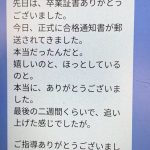 先日は、卒業証書ありがとうございました。
今日、正式に合格通知書が郵送されてきました。
本当だったんだと。
嬉しいのと、ほっとしているのと。
本当に、ありがとうございました。
最後の二週間くらいで、追い上げた感じでしたが。
ご指導ありがとうございまし